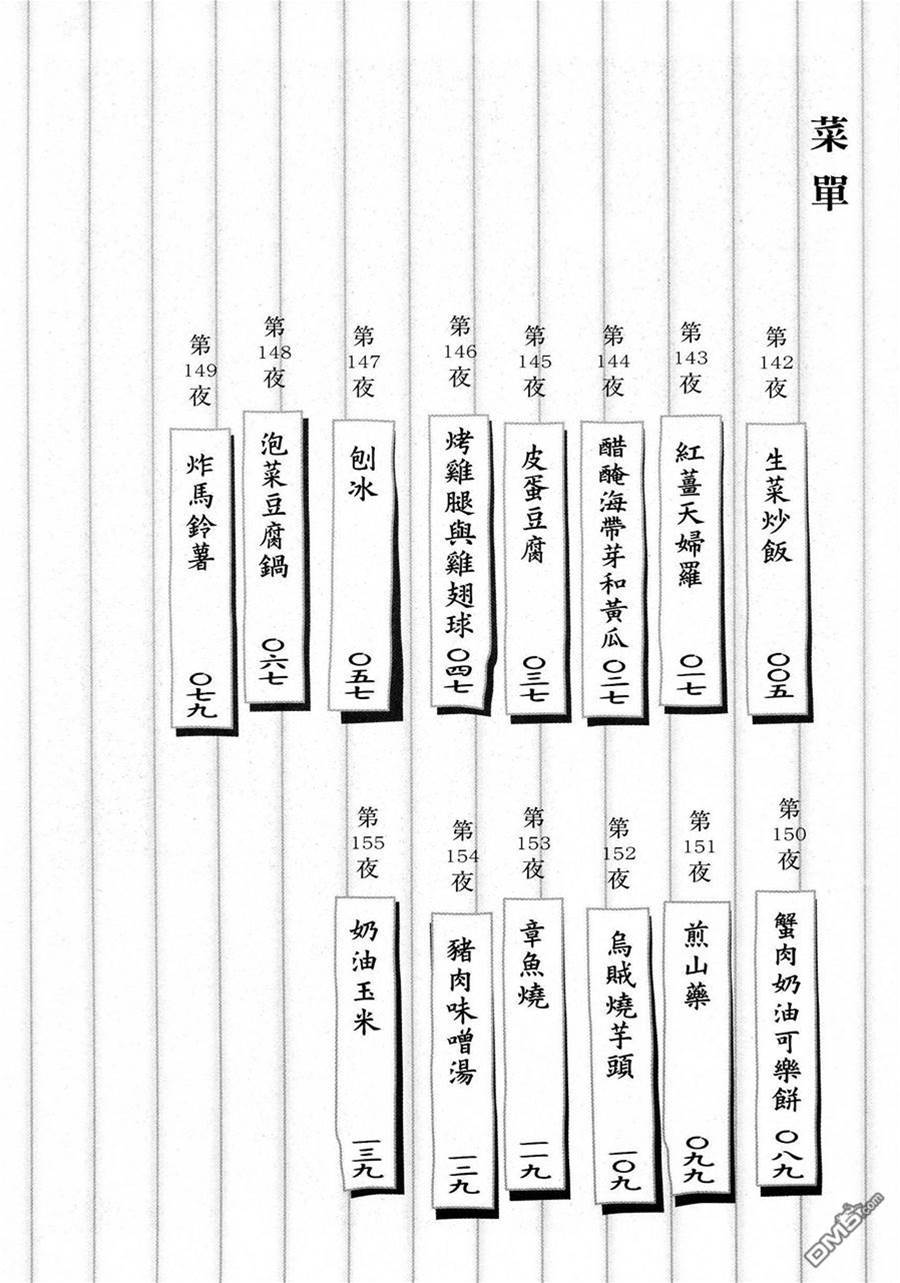 菜單
第142夜
生菜炒飯
〇〇五
第143夜
紅薑天婦羅
〇一七
第144夜
醋醃海帶芽和黃瓜
〇二七
第145夜
皮蛋豆腐
〇三七
第146夜
烤雞腿與雞翅球
〇四七
第147夜
刨冰
〇五七
第148夜
泡菜豆腐鍋
〇六七
第149夜
炸馬鈴薯
〇七九
第150夜
蟹肉奶油可樂餅
〇八九
第151夜
煎山藥
〇九九
第152夜
烏賊燒芋頭
一〇九
第153夜
章魚燒
一一九
第154夜
豬肉味噌湯
一二九
第155夜
奶油玉米
一三九
DM5.com